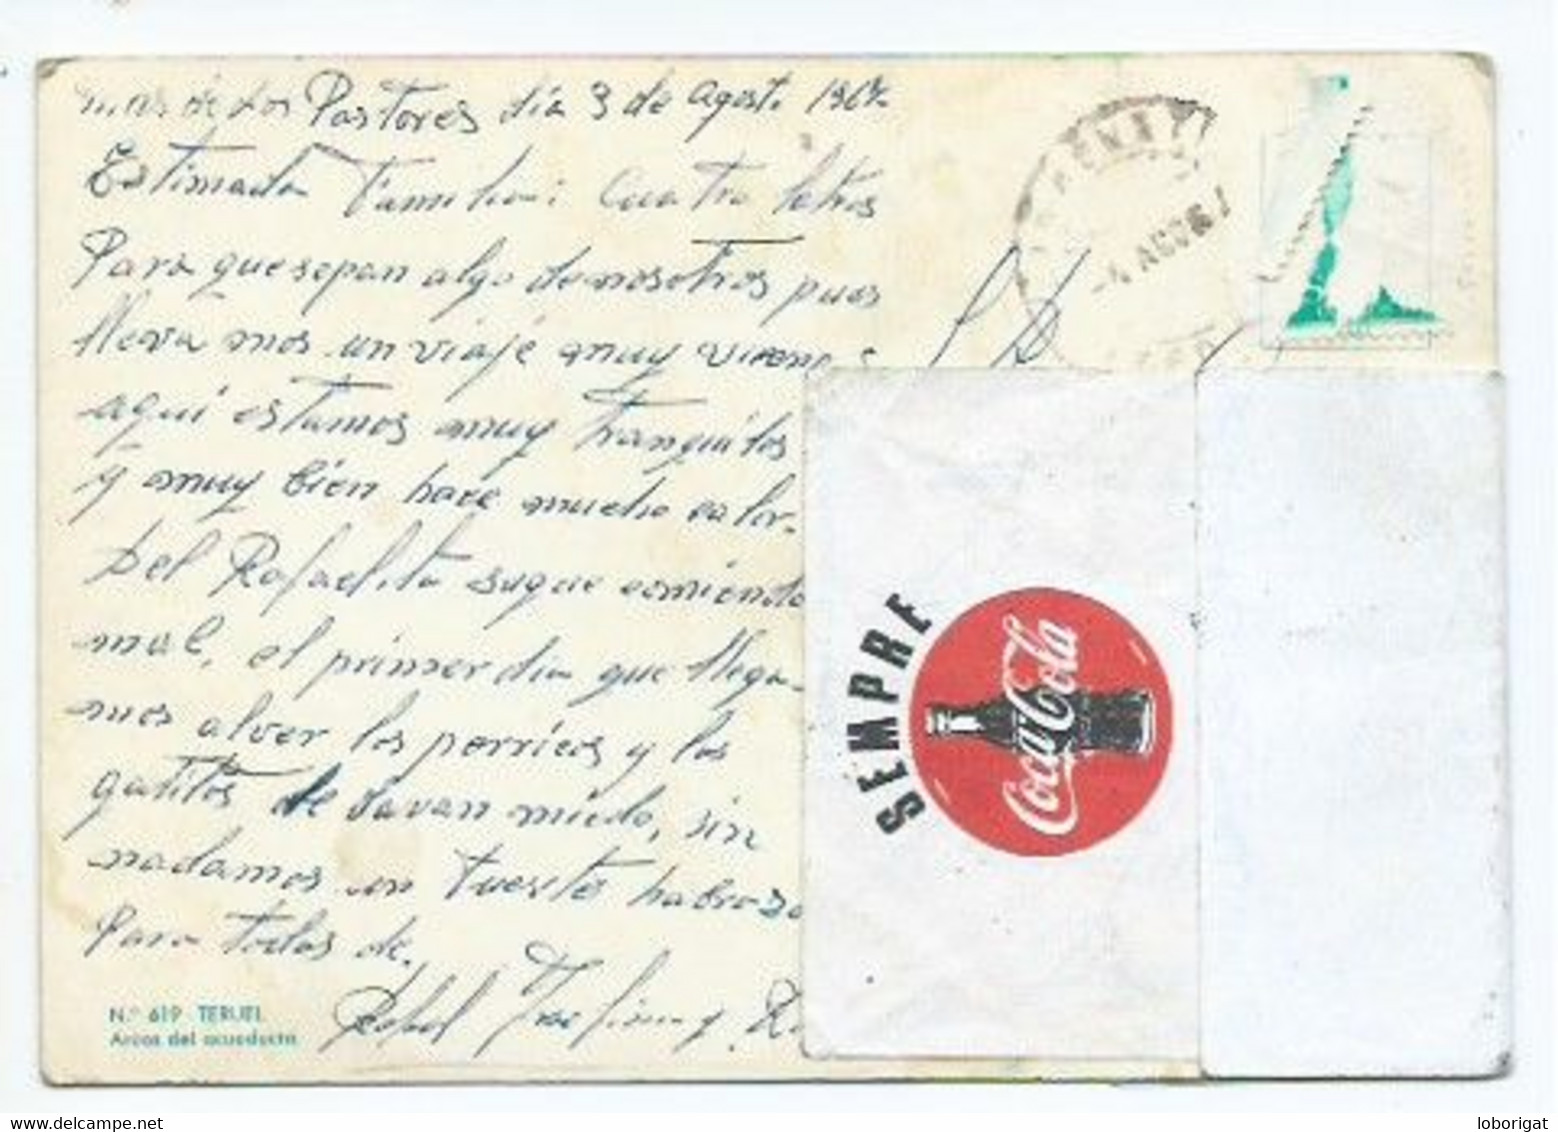 mas de los Pastores dia 3 de agosto 1967
Estimada Familia: Cuatro letras
Para que sepan algo de nosotros pues
lleva mos un viaje muy
aqui estamos muy tranquilos
y muy bien hace mucho calor.
Del Rafaelito sugue comiendo
mal, el primer dia que llega-
mos alver los perricos y los
gatitos le davan miedo, sin
nadamos un fuerte habraso
Para todos de.
Rafael Josefina y
N.º 619 TERUEL
Arcos del acueducto
-4 AGO 67
SEMPRE
Coca-Cola
loborigat